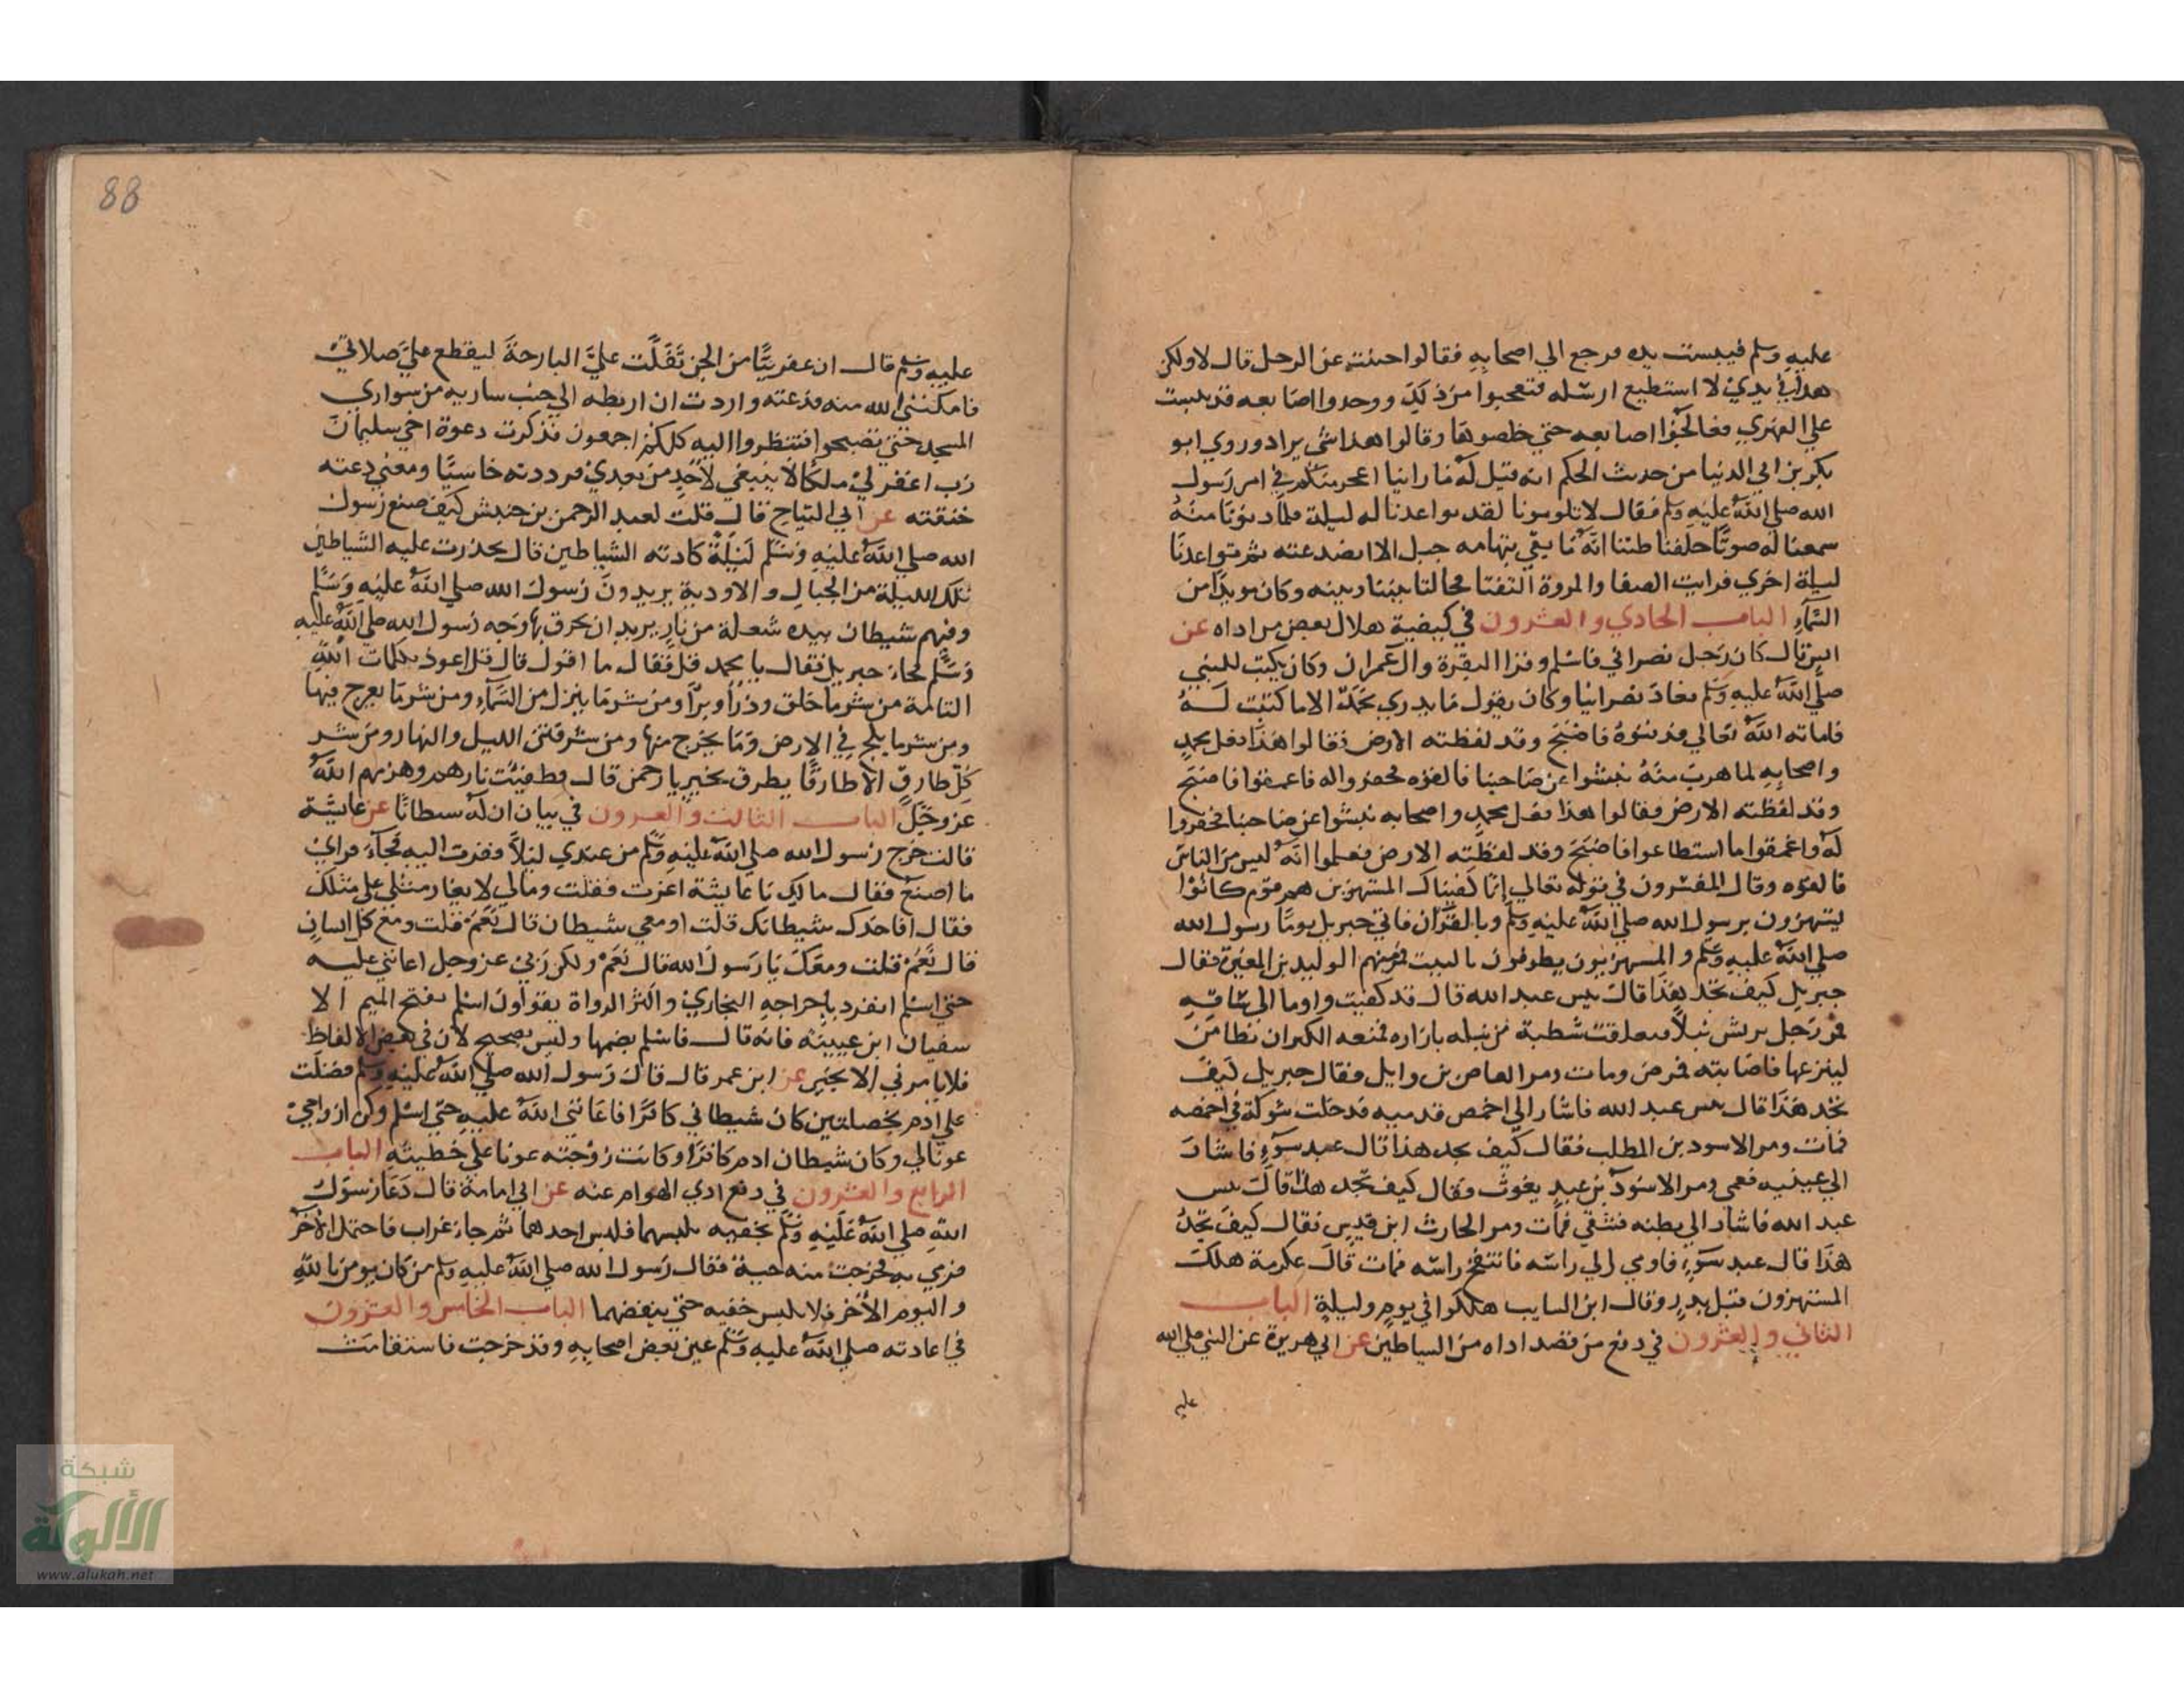 عليه وسلم فيبست يده فرجع الي اصحابه فقالوا جبنت عن الرجل قال لا ولكن
هذا في يدي لا استطيع ارسله فتعجبوا من ذلك ووجدوا اصابعه قد يبست
علي الفهري فعالجوا اصابعه حتي خلصوها وقالوا هذا شي يراد وروي ابو
بكر بن ابي الدنيا من حديث الحكم انه قيل له ما راينا اعجز منكم في امر رسول
الله صلي الله عليه وسلم فقال لا تلومونا لقد تواعدنا له ليلة فلما دنونا منه
سمعنا له صوتا خلفنا ظننا انه ما بقي بتهامه جبل الا انصدعته ثم تواعدنا
ليلة اخري فرايت الصفا والمروة التقتا فحالتا بيننا وبينه وكان مويدا من
السماء الباب الحادي والعشرون في كيفية هلاك بعض من اداه عن
انس قال كان رجل نصراني فاسلم وقرا البقرة وال عمران وكان يكتب للنبي
صلي الله عليه وسلم فعاد نصرانيا وكان يقول ما يدري محمد الا ما كتبت له
فاماته الله تعالي فدفنوه فاصبح وقد لفظته الارض فقالوا هذا فعل محمد
واصحابه لما هرب منه نبشوا عن صاحبنا فالقوه فحفروا له فاعمقوا فاصبح
وقد لفظته الارض فقالوا هذا فعل محمد واصحابه نبشوا عن صاحبنا فحفروا
له واعمقوا ما استطاعوا فاصبح وقد لفظته الارض فعلموا انه ليس من الناس
فالقوه وقال المفسرون في قوله تعالي انا كفيناك المستهزين هم قوم كانوا
يستهزون برسول الله صلي الله عليه وسلم وبالقران فاتي جبريل يوما رسول الله
صلي الله عليه وسلم والمستهزيون يطوفون بالبيت فمر بهم الوليد بن المغيرة فقال
جبريل كيف تجد هذا قال بيس عبد الله قال قد كفيت واوما الي ساقه
فمر رجل بريش نبلا فتعلقت شظية من نبله بازاره فمنعه الكبر ان نطامن
لينزعها فاصابته فمرض ومات ومر العاص بن وايل فقال جبريل كيف
تجد هذا قال بيس عبد الله فاشار الي اخمص قدميه فدخلت شوكة في اخمصه
فمات ومر الاسود بن المطلب فقال كيف تجد هذا قال عبد سوء فاشار
الي عينيه فعمي ومر الاسود بن عبد يغوث فقال كيف تجد هذا قال بيس
عبد الله فاشار الي بطنه فشقي فمات ومر الحارث ابن قيس فقال كيف تجد
هذا قال عبد سوء فاومي الي راسه فانتفخ راسه فمات قال عكرمة هلك
المستهزون قبل بدر وقال ابن السايب هلكوا في يوم وليلة الباب
الثاني والعشرون في دفع من قصد اداه من الشياطين عن ابي هريرة عن النبي صلي الله
عليه
88
عليه وسلم قال ان عفريتا من الجن تفلت علي البارحة ليقطع علي صلاتي
فامكنني الله منه فذعته واردت ان اربطه الي جنب سارية من سواري
المسجد حتي تصبحوا فتنظروا اليه كلكم اجمعون فذكرت دعوة اخي سليمان
رب اغفر لي ملكا لا ينبغي لاحد من بعدي فرددته خاسيا ومعني دعته
خنقته عن ابي التياح قال قلت لعبد الرحمن بن خنبش كيف صنع رسول
الله صلي الله عليه وسلم ليلة كادته الشياطين قال تحدرت عليه الشياطين
تلك الليلة من الجبال والاودية يريدون رسول الله صلي الله عليه وسلم
وفيهم شيطان بيده شعلة من نار يريد ان يحرق بها وجه رسول الله صلي الله عليه
وسلم فجاء جبريل فقال يا محمد قل فقال ما اقول قال قل اعوذ بكلمات الله
التامة من شر ما خلق وذرا وبرا ومن شر ما ينزل من السماء ومن شر ما يعرج فيها
ومن شر ما يلج في الارض وما يخرج منها ومن شر فتن الليل والنهار ومن شر
كل طارق الا طارقا يطرق بخير يا رحمن قال فطفيت نارهم وهزمهم الله
عز وجل الباب الثالث والعشرون في بيان ان له شيطانا عن عايشة
قالت خرج رسول الله صلي الله عليه وسلم من عندي ليلا فغرت اليه فجاء فراي
ما اصنع فقال مالك يا عايشة اغرت فقلت ومالي لا يغار مثلي علي مثلك
فقال افاخدك شيطانك قلت او معي شيطان قال نعم قلت ومع كل انسان
قال نعم قلت ومعك يا رسول الله قال نعم ولكن ربي عز وجل اعانني عليه
حتي اسلم انفرد باخراجه البخاري واكثر الرواة يقولون اسلم بفتح الميم الا
سفيان ابن عيينة فانه قال فاسلم بضمها وليس بصحيح لان في بعض الالفاظ
فلا يامرني الا بخير عن ابن عمر قال قال رسول الله صلي الله عليه وسلم فضلت
علي ادم بخصلتين كان شيطاني كافرا فاعانني الله عليه حتي اسلم وكن ازواجي
عونا لي وكان شيطان ادم كافرا وكانت زوجته عونا علي خطيته الباب
الرابع والعشرون في دفع ادي الهوام عنه عن ابي امامة قال دعا رسول
الله صلي الله عليه وسلم بخفيه يلبسهما فلبس احدهما ثم جاء غراب فاحتمل الاخر
فرمي به فخرجت منه حية فقال رسول الله صلي الله عليه وسلم من كان يومن بالله
واليوم الاخر فلا يلبس خفيه حتي ينفضهما الباب الخامس والعشرون
في اعادته صلي الله عليه وسلم عين بعض اصحابه وقد خرجت فاستقامت
شبكة
الألوكة
www.alukah.net